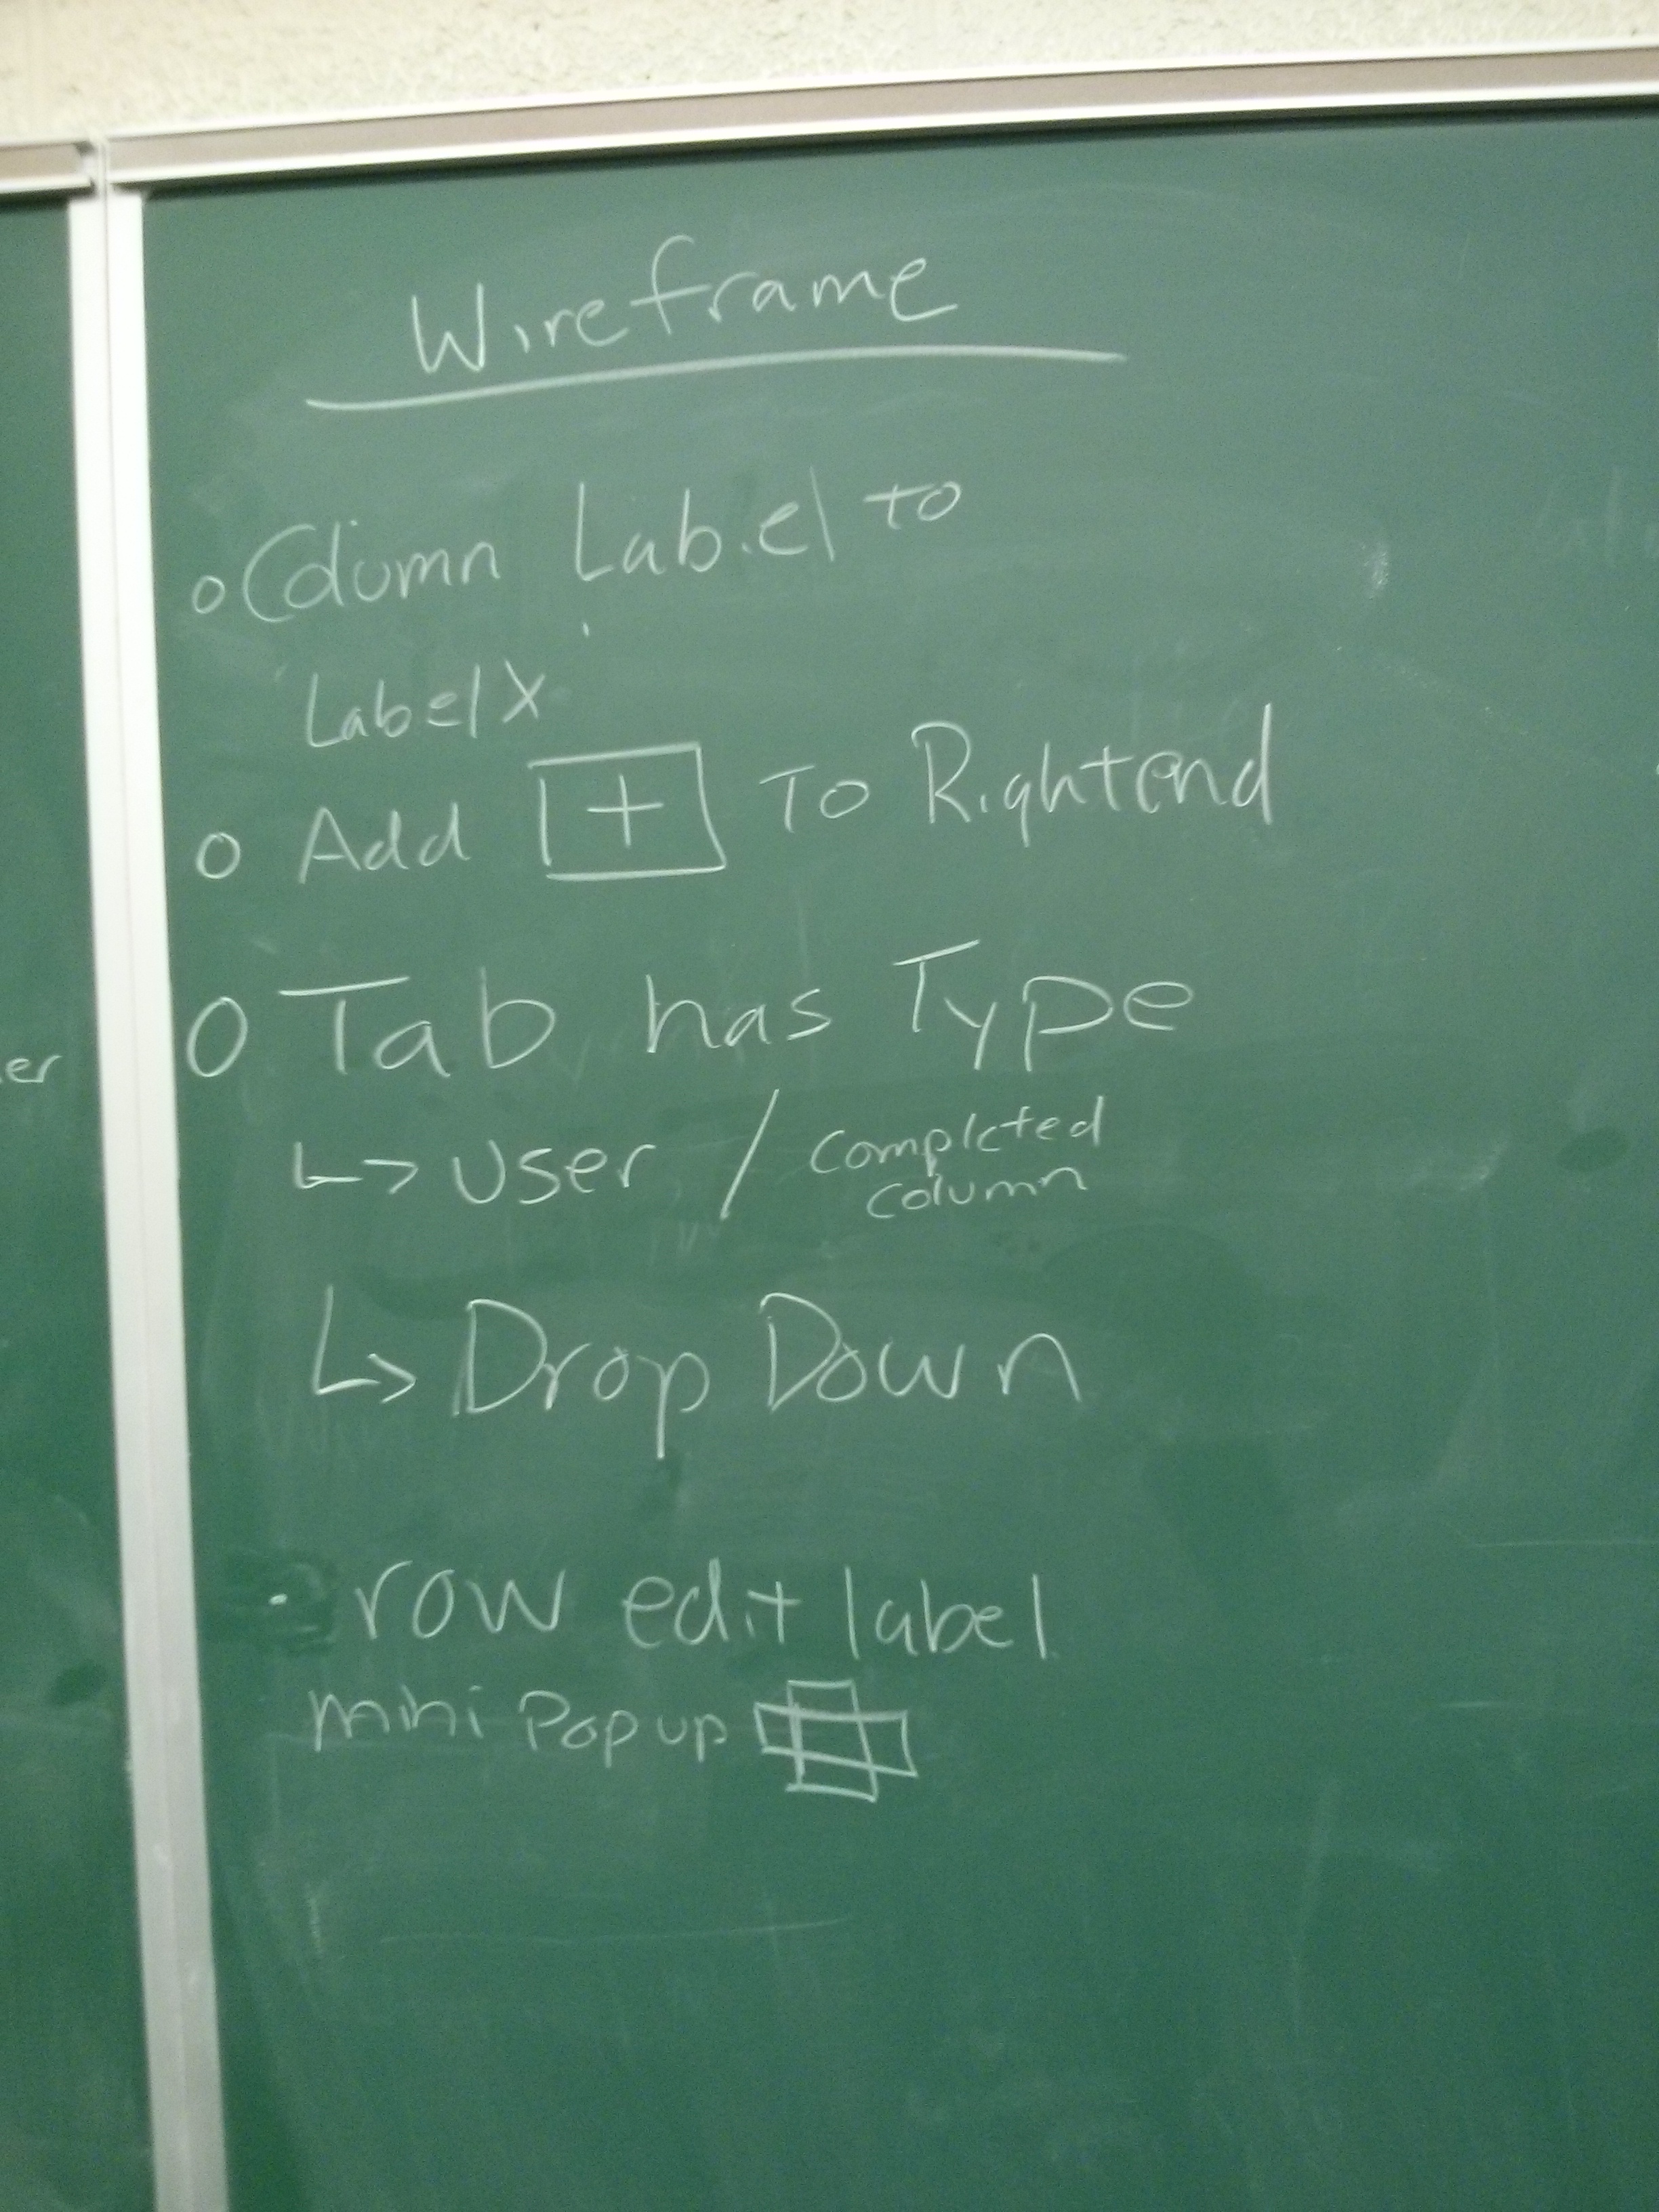 Wireframe
o Column Label to
Label X
o Add + To Rightend
o Tab has Type
↳ User / completed
column
↳ Drop Down
· row edit label
mini Popup
er